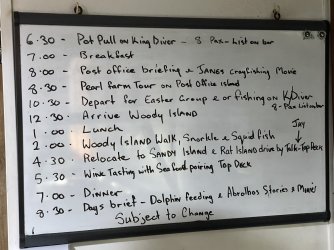 6.30 - Pot Pull on King Diver - 8 Pax - List on bar
7.00 - Breakfast
8.00 - Post office briefing & JANES crayfishing Movie
8.30 - Pearl farm Tour on Post office island
10.30 - Depart for Easter Group & or fishing on K/Diver
8 - Pax List on bar
12.30 - Arrive Woody Island
1.00 - Lunch
JAY
2.00 - Woody Island Walk, Snorkle & Squid fish
4.30 - Relocate to SANDY Island & Rat Island drive by Talk-Top Deck
5.30 - Wine Tasting with Seafood pairing Top Deck
7.00 - Dinner
8.30 - Days brief - Dolphin feeding & Abrolhos Stories & Movies
Subject to Change